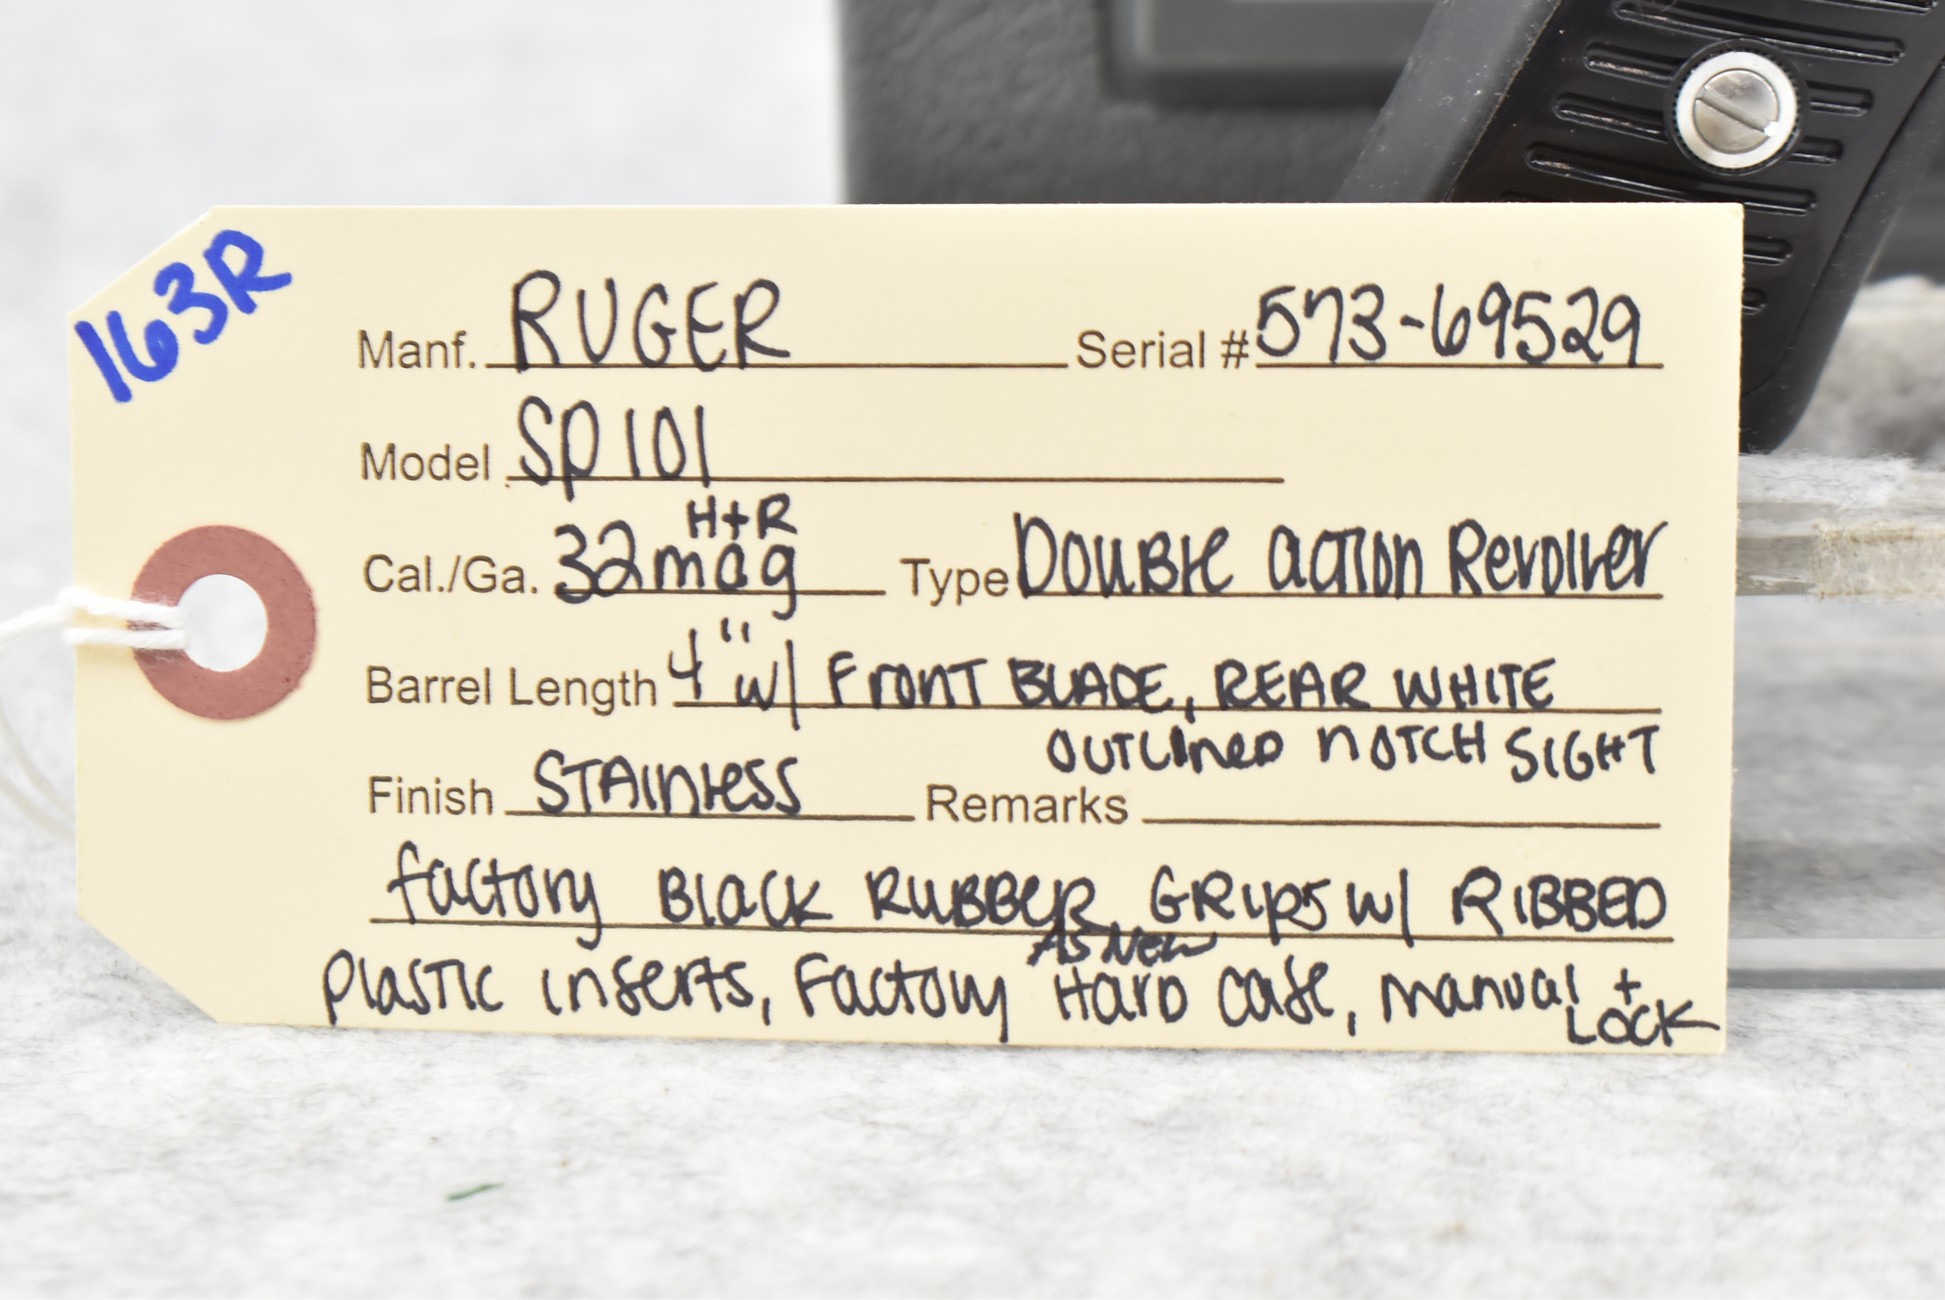 163R
Manf. RUGER Serial # 573-69529
Model SP101
H+R
Cal./Ga. 32mag Type Double action Revolver
Barrel Length 4" w/ Front BLADE, REAR WHITE
OUTLINED NOTCH SIGHT
Finish STAINless Remarks
factory Black RUBBER GRIPS w/ RIBBED
AS NEW
Plastic inserts, Factory Hard case, manual +
LOCK